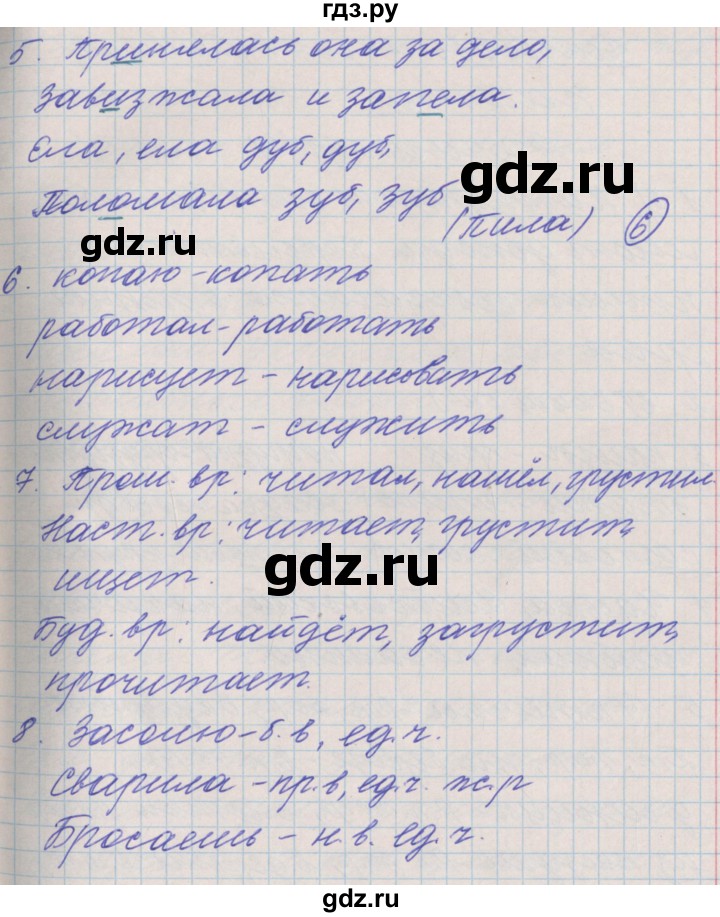 гдз.ру
5. Принялась она за дело,
завизжала и запела.
Ела, ела дуб, дуб,
Поломала зуб, зуб
gdz.ru
(Пила) 6
gdz.ru
6. копаю - копать
работал - работать
нарисует - нарисовать
служат - служить
7. Прош. вр: читал, нашёл, грустил.
Наст. вр: читает, грустит,
ищет.
gdz.ru
Буд. вр: найдёт, загрустит,
прочитает.
8. Засолю - б. в, ед. ч.
Сварила - пр. в, ед. ч. ж. р
Бросаешь - н. в. ед. ч.
gdz.ru